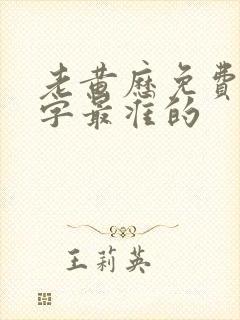 老黄历免费
字最准的
王莉英